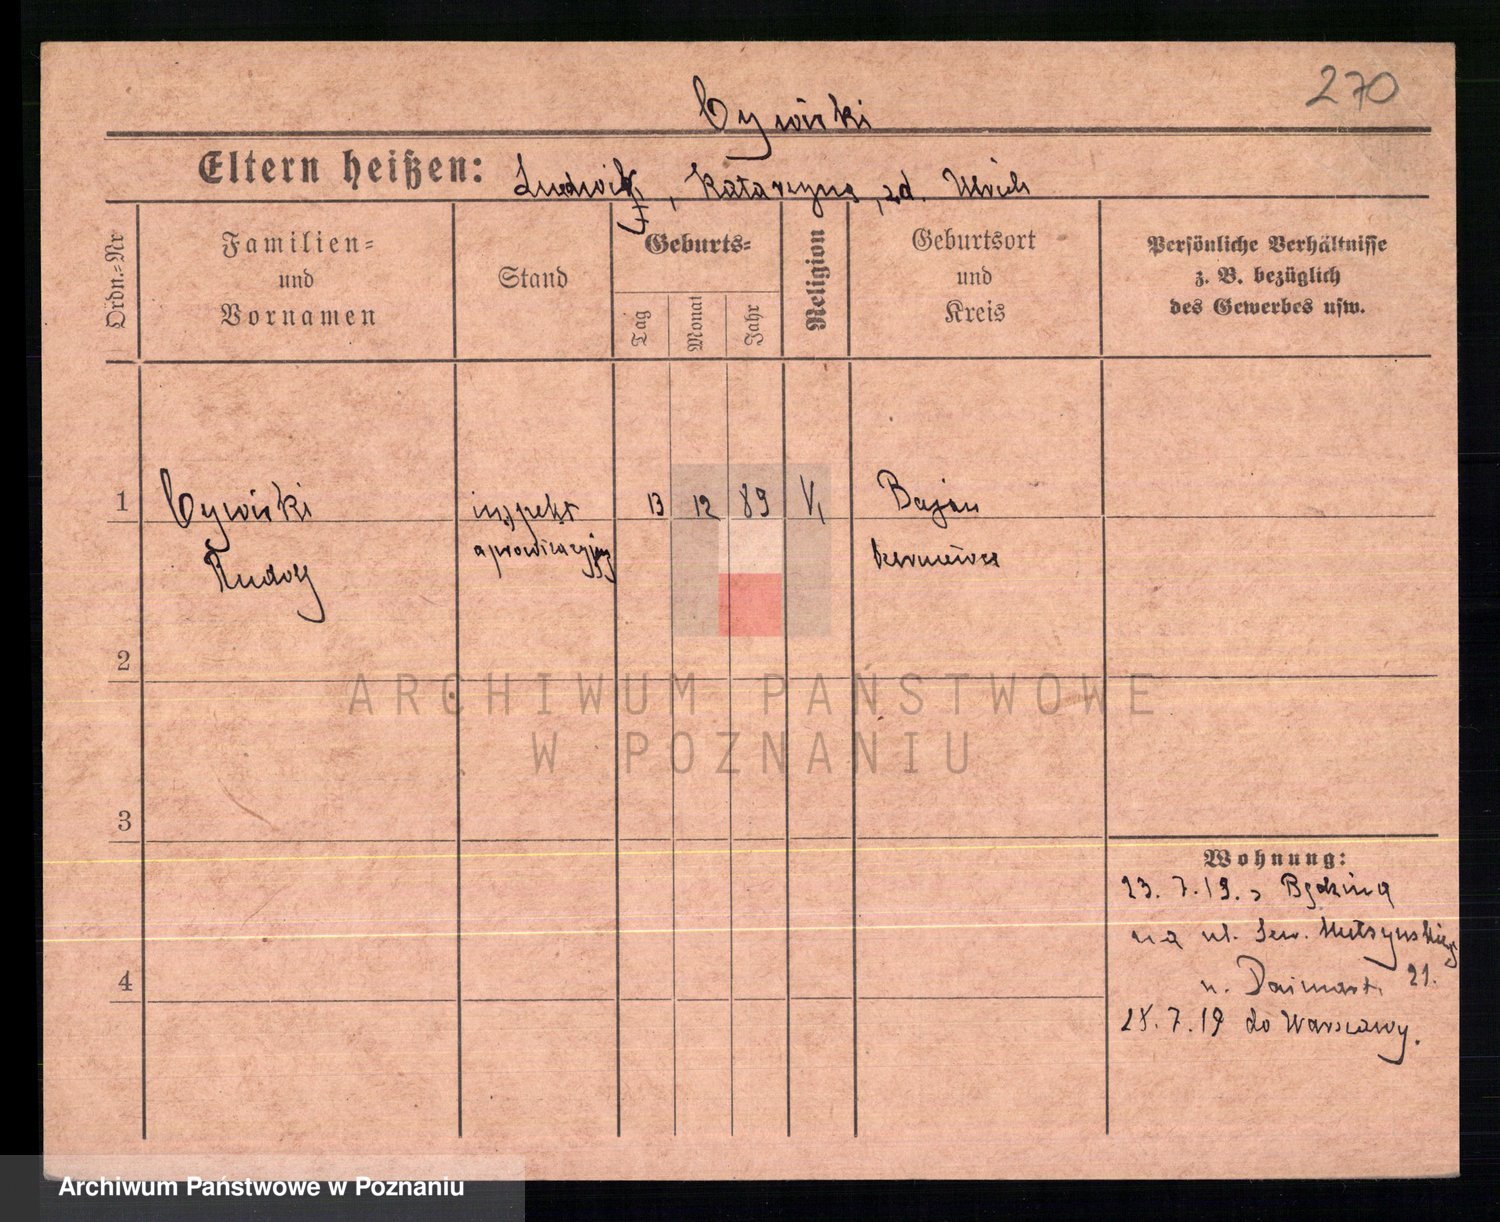 270
Cywiński
Eltern heißen: Ludwik, Katarzyna, zd. Ulrich
Ordn.=Nr
Familien=
und
Vornamen
Stand
Geburts=
Tag
Monat
Jahr
Religion
Geburtsort
und
Kreis
Persönliche Verhältnisse
z. B. bezüglich
des Gewerbes usw.
1
Cywiński
Rudolf
inspekt
aprowizacyjny
13 12 89
Bajan
2
3
4
Wohnung:
23. 7. 19. z Będzina
na ul. Sew.
21.
28. 7. 19 do Warszawy.
ARCHIWUM PAŃSTWOWE
W POZNANIU
Archiwum Państwowe w Poznaniu